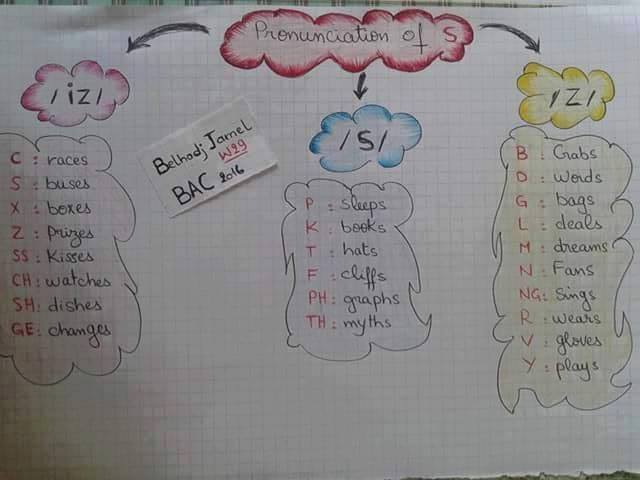 Pronunciation of S
/iz/
C : races
S : buses
X : boxes
Z : Prizes
SS : Kisses
CH : watches
SH : dishes
GE : changes
Belhadj Jamel
W29
BAC 2016
/S/
P : sleeps
K : books
T : hats
F : cliffs
PH : graphs
TH : myths
/Z/
B : Grabs
D : Words
G : bags
L : deals
M : dreams
N : Fans
NG : Sings
R : wears
V : gloves
Y : plays